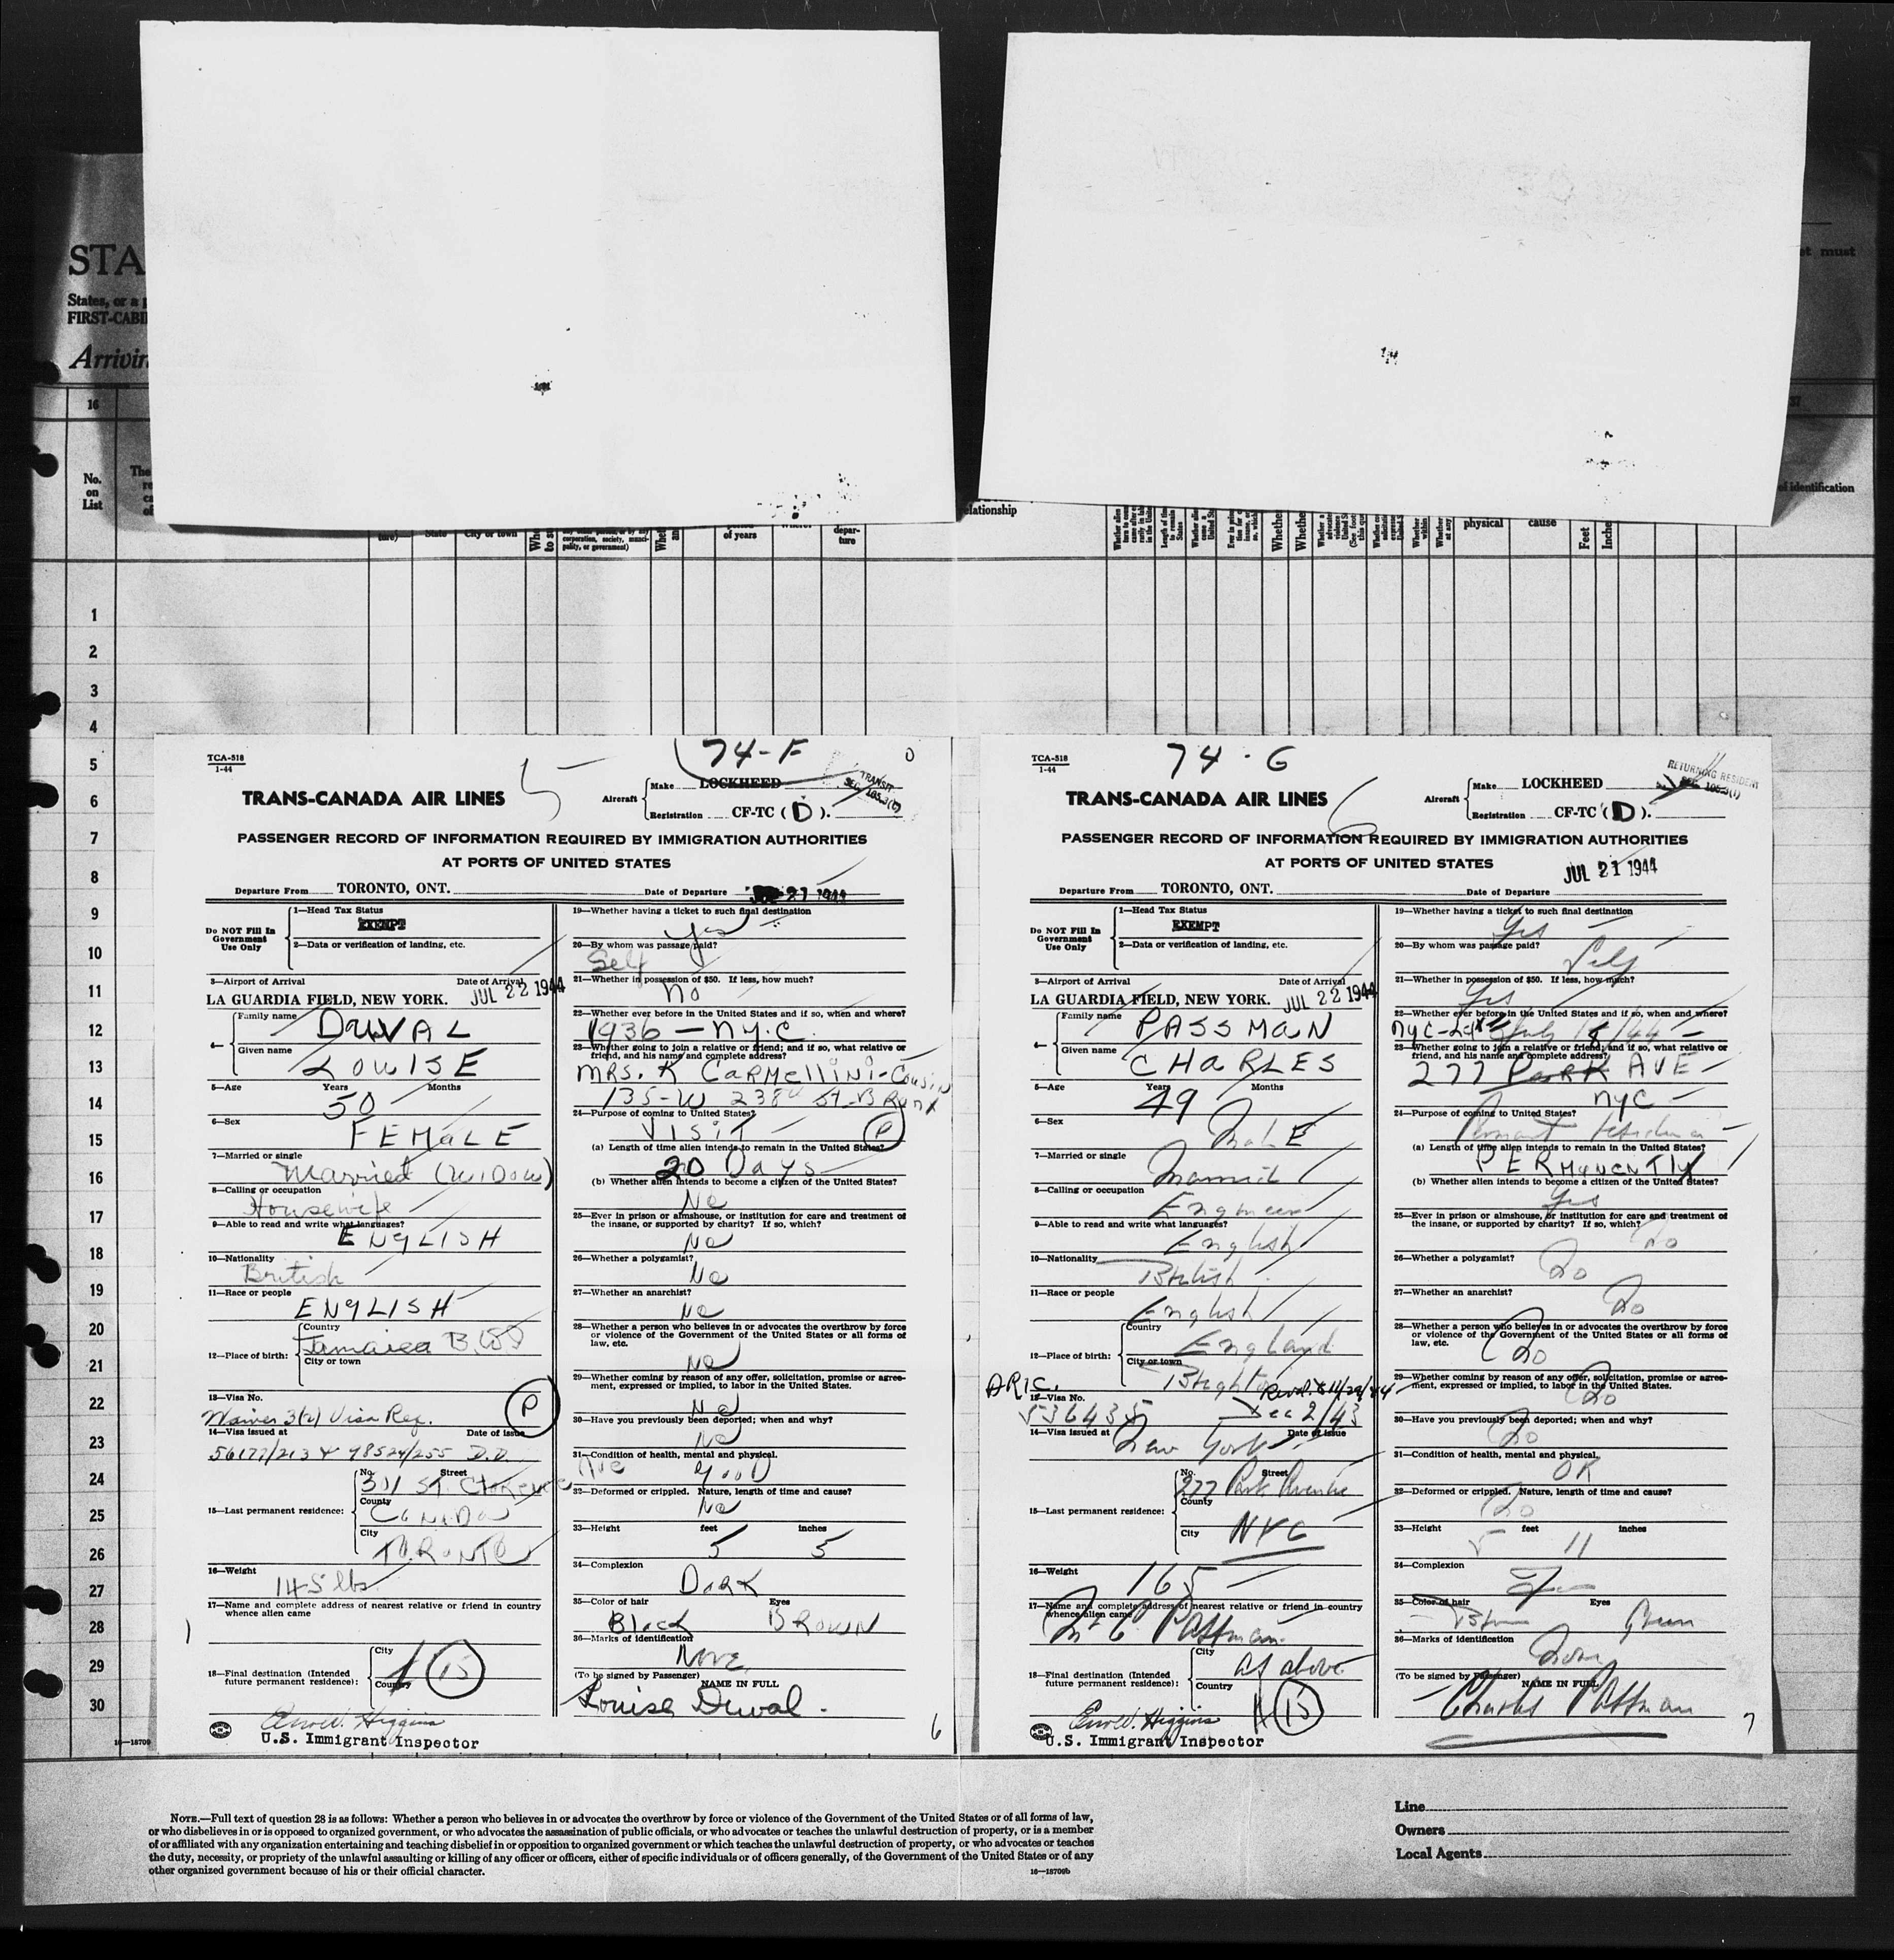 STA
States, or a
FIRST-CABI
Arrivin
et must
16
37
No.
on
List
The
of identification
elationship
ture)
State
City or town
corporation, society, munici-
pality, or government)
of years
depar-
ture
physical
cause
Feet
Inche
1
2
3
4
5
6
7
8
9
10
11
12
13
14
15
16
17
18
19
20
21
22
23
24
25
26
27
28
29
30
16—18709
TCA-518
1-44
5
74-F
TRANS-CANADA AIR LINES
Aircraft
Make LOCKHEED
Registration CF-TC (D).
TRANSIT
PASSENGER RECORD OF INFORMATION REQUIRED BY IMMIGRATION AUTHORITIES
AT PORTS OF UNITED STATES
Departure From TORONTO, ONT. Date of Departure 21 1944
Do NOT Fill In
Government
Use Only
1—Head Tax Status
EXEMPT
2—Data or verification of landing, etc.
3—Airport of Arrival Date of Arrival
LA GUARDIA FIELD, NEW YORK. JUL 22 1944
4—
Family name
DUVAL
Given name
LOUISE
5—Age Years Months
50
6—Sex
FEMALE
7—Married or single
Married (WIDOW)
8—Calling or occupation
Housewife
9—Able to read and write what languages?
ENGLISH
10—Nationality
British
11—Race or people
ENGLISH
12—Place of birth:
Country
Jamaica B.W.I
City or town
13—Visa No.
P
Waiver 3(2) Visa Req.
14—Visa issued at Date of issue
56177/213 & 98524/255 D.D.
15—Last permanent residence:
No. Street
301 St. Clarence Ave
County
CANADA
City
TORONTO
16—Weight
145 lbs
17—Name and complete address of nearest relative or friend in country
whence alien came
18—Final destination (Intended
future permanent residence):
City
Country
15
U.S. Immigrant Inspector
19—Whether having a ticket to such final destination
Yes
20—By whom was passage paid?
Self
21—Whether in possession of $50. If less, how much?
No
22—Whether ever before in the United States and if so, when and where?
1936 — N.Y.C
23—Whether going to join a relative or friend; and if so, what relative or
friend, and his name and complete address?
MRS. K CARMELLINI-Cousin
135-W 238 St-Bronx
24—Purpose of coming to United States?
VISIT P
(a) Length of time alien intends to remain in the United States?
20 Days
(b) Whether alien intends to become a citizen of the United States?
No
25—Ever in prison or almshouse, or institution for care and treatment of
the insane, or supported by charity? If so, which?
No
26—Whether a polygamist?
No
27—Whether an anarchist?
No
28—Whether a person who believes in or advocates the overthrow by force
or violence of the Government of the United States or all forms of
law, etc.
No
29—Whether coming by reason of any offer, solicitation, promise or agree-
ment, expressed or implied, to labor in the United States.
No
30—Have you previously been deported; when and why?
No
31—Condition of health, mental and physical.
Good
32—Deformed or crippled. Nature, length of time and cause?
No
33—Height feet inches
5 5
34—Complexion
Dark
35—Color of hair Eyes
Black BROWN
36—Marks of identification
None
(To be signed by Passenger) NAME IN FULL
Louise Duval.
6
TCA-518
1-44
74-G
6
TRANS-CANADA AIR LINES
Aircraft
Make LOCKHEED
Registration CF-TC (D).
RETURNING RESIDENT
PASSENGER RECORD OF INFORMATION REQUIRED BY IMMIGRATION AUTHORITIES
AT PORTS OF UNITED STATES
Departure From TORONTO, ONT. Date of Departure JUL 21 1944
Do NOT Fill In
Government
Use Only
1—Head Tax Status
EXEMPT
2—Data or verification of landing, etc.
3—Airport of Arrival Date of Arrival
LA GUARDIA FIELD, NEW YORK. JUL 22 1944
4—
Family name
PASSMAN
Given name
CHARLES
5—Age Years Months
49
6—Sex
Male
7—Married or single
Married
8—Calling or occupation
Engineer
9—Able to read and write what languages?
English
10—Nationality
British
11—Race or people
English
12—Place of birth:
Country
England
City or town
Brighton
13—Visa No.
Dec 2/43
14—Visa issued at Date of issue
New York
15—Last permanent residence:
No. Street
277 Park Avenue
County
City
NYC
16—Weight
165
17—Name and complete address of nearest relative or friend in country
whence alien came
Passman
18—Final destination (Intended
future permanent residence):
City
as above
Country
15
U.S. Immigrant Inspector
19—Whether having a ticket to such final destination
Yes
20—By whom was passage paid?
Self
21—Whether in possession of $50. If less, how much?
Yes
22—Whether ever before in the United States and if so, when and where?
NYC
23—Whether going to join a relative or friend; and if so, what relative or
friend, and his name and complete address?
277 Park AVE
NYC
24—Purpose of coming to United States?
(a) Length of time alien intends to remain in the United States?
PERMANENTLY
(b) Whether alien intends to become a citizen of the United States?
Yes
25—Ever in prison or almshouse, or institution for care and treatment of
the insane, or supported by charity? If so, which?
No
26—Whether a polygamist?
No
27—Whether an anarchist?
No
28—Whether a person who believes in or advocates the overthrow by force
or violence of the Government of the United States or all forms of
law, etc.
No
29—Whether coming by reason of any offer, solicitation, promise or agree-
ment, expressed or implied, to labor in the United States.
No
30—Have you previously been deported; when and why?
No
31—Condition of health, mental and physical.
OK
32—Deformed or crippled. Nature, length of time and cause?
No
33—Height feet inches
5 11
34—Complexion
35—Color of hair Eyes
Green
36—Marks of identification
None
(To be signed by Passenger) NAME IN FULL
Charles Passman
7
NOTE.—Full text of question 28 is as follows: Whether a person who believes in or advocates the overthrow by force or violence of the Government of the United States or of all forms of law,
or who disbelieves in or is opposed to organized government, or who advocates the assassination of public officials, or who advocates or teaches the unlawful destruction of property, or is a member
of or affiliated with any organization entertaining and teaching disbelief in or opposition to organized government or which teaches the unlawful destruction of property, or who advocates or teaches
the duty, necessity, or propriety of the unlawful assaulting or killing of any officer or officers, either of specific individuals or of officers generally, of the Government of the United States or of any
other organized government because of his or their official character.
16—18709b
Line
Owners
Local Agents